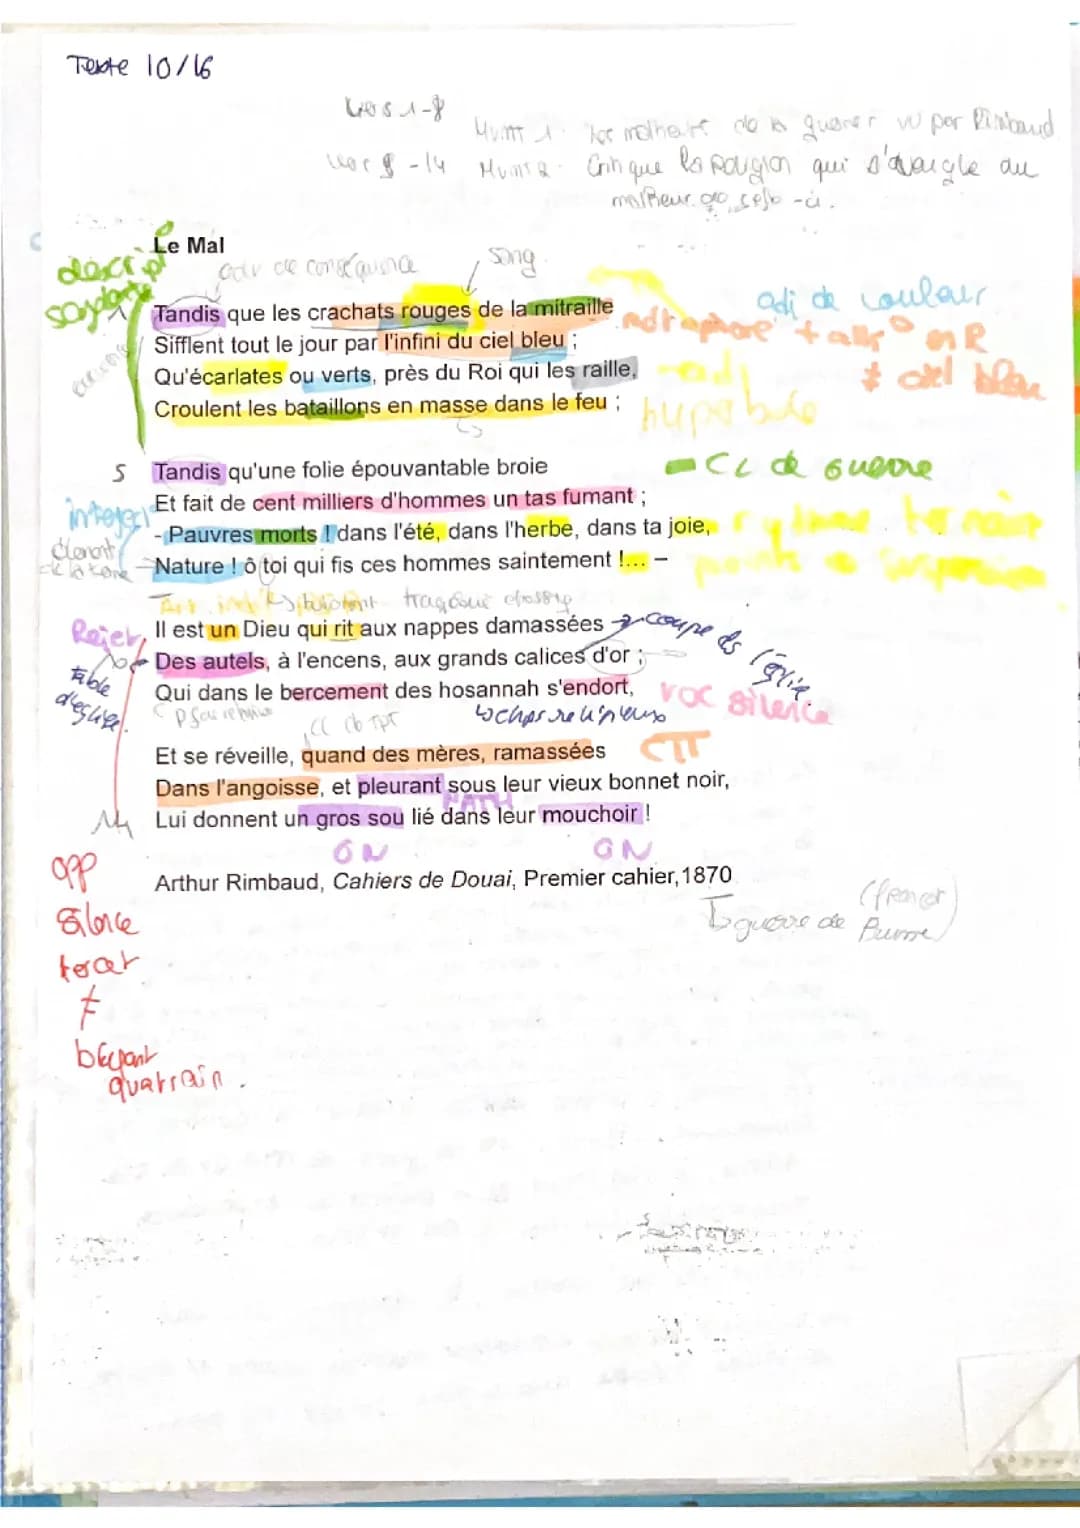 Texte 10/16
Vers 1-8
Mvmt 1. Les malheurs de la guerre vu par Rimbaud
Vers 9-14 Mvmt 2. Critique la religion qui s'aveugle au
malheur de
Le Mal
adv de conséquence
sang
descript
Tandis que les crachats rouges de la mitraille
adj de couleur
Sifflent tout le jour par l'infini du ciel bleu ;
métaphore + allit° en R
Qu'écarlates ou verts, près du Roi qui les raille,
≠ ciel bleu
Croulent les bataillons en masse dans le feu ;
hyperbole
5 Tandis qu'une folie épouvantable broie
CL de guerre
Et fait de cent milliers d'hommes un tas fumant ;
- Pauvres morts ! dans l'été, dans l'herbe, dans ta joie,
rythme ternaire
Nature ! ô toi qui fis ces hommes saintement !... –
points de suspension
Il est un Dieu qui rit aux nappes damassées
Rejet
Des autels, à l'encens, aux grands calices d'or ;
table
d'église
Qui dans le bercement des hosannah s'endort,
voc silence
CC de TPS
Et se réveille, quand des mères, ramassées
Dans l'angoisse, et pleurant sous leur vieux bonnet noir,
PATH
14 Lui donnent un gros sou lié dans leur mouchoir !
GN GN
Arthur Rimbaud, Cahiers de Douai, Premier cahier,1870
guerre de
opp
silence
tercet
≠
bruyant
quatrain.